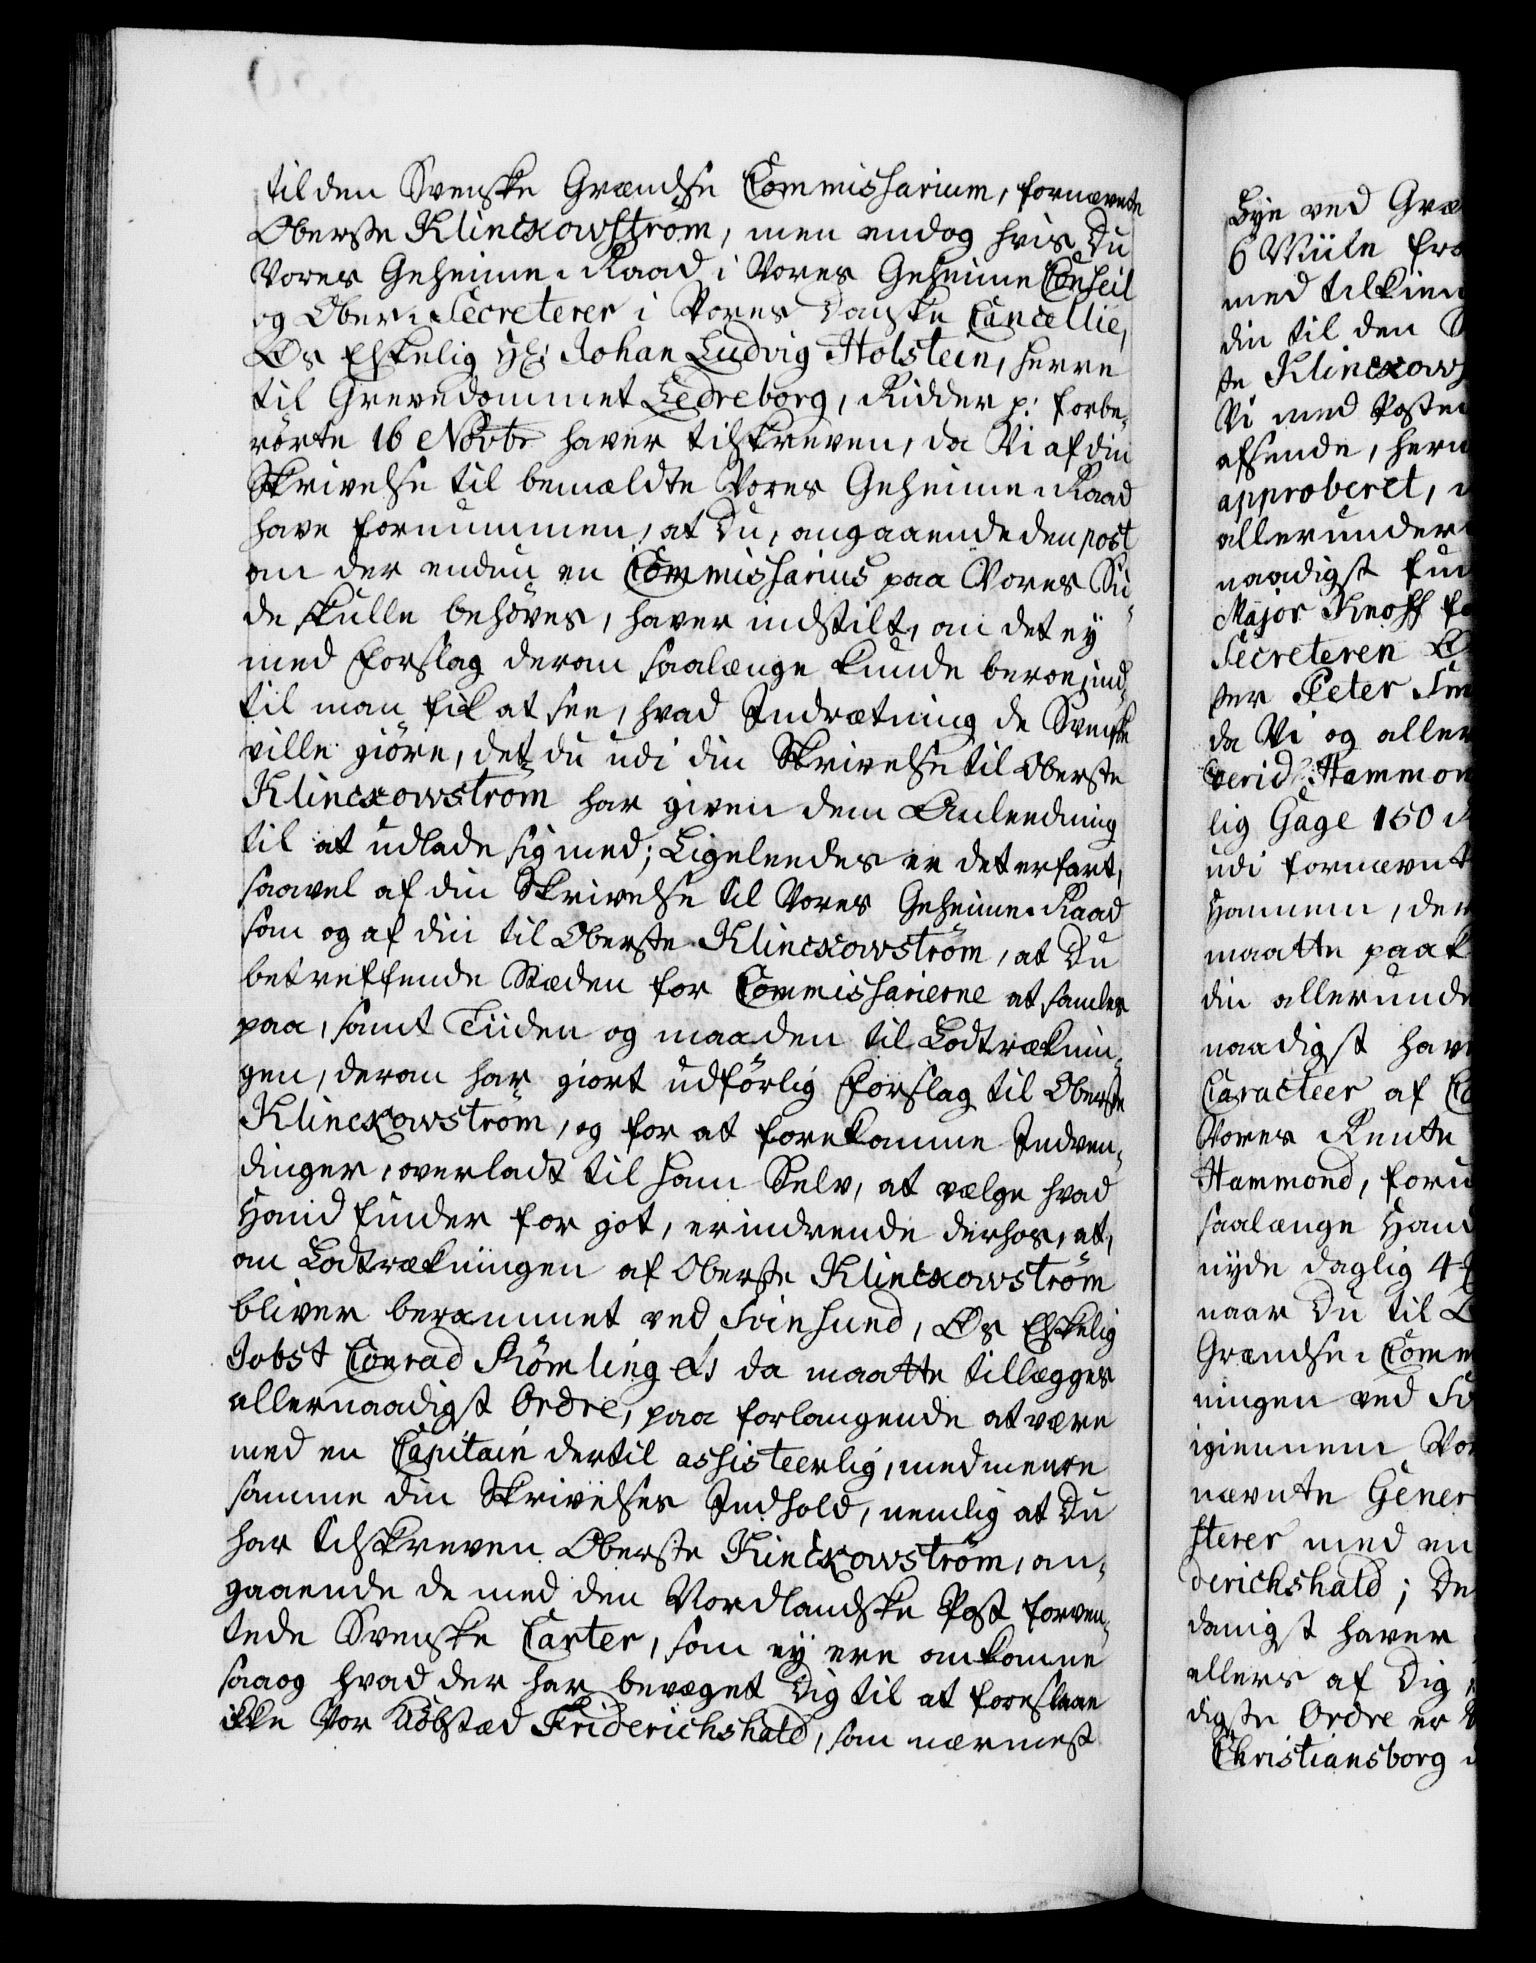 til den Svenske Grændse Commissarium, fornævnte
Oberste Klinckowström, men endog hvis Du
Vores Geheime-Raad i Vores Geheime Conseil
og Ober-Secreterer i Vores Danske Cancellie,
Os Elskelig Hr: Johan Ludvig Holstein, Herre
til Grevedommet Ledreborg, Ridder p: forbe-
rörte 16 Novbr haver tilskreven, da Vi af din
Skrivelse til bemældte Vores Geheime-Raad
have fornummen, at Du, angaaende den post
om der endnu en Commissarius paa Vores Si-
de skulle behöves, haver indstilt, om det ey
med Forslag derom saalænge kunde beroe, ind-
til man fik at see, hvad Indrætning de Svenske
ville giöre, det du udi din Skrivelse til Oberste
Klinckowström har given dem Anleedning
til at udlade sig med; Ligeleedes er det erfart,
saavel af din Skrivelse til Vores Geheime-Raad
som og af din til Oberste Klinckowström, at Du
betreffende Stæden for Commissarierne at samles
paa, samt Tiiden og maaden til Lodtræknin-
gen, derom har giort udförlig Forslag til Oberste
Klinckowström, og for at forekomme Indven-
dinger, overladt til ham Selv, at vælge hvad
Hand finder for got, erindrende derhos, at,
om Lodtrækningen af Oberste Klinckowström
bliver berammet ved Svinsund, Os Elskelig
Jobst Conrad Römling da maatte tillægges
allernaadigst Ordre, paa forlangende at være
med en Capitain dertil assisteerlig, med meere
samme din Skrivelses Indhold, nemlig at Du
har tilskreven Oberste Klinckowström, an-
gaaende de med den Nordlandske Post forven-
tede Svenske Carter, som ey ere ankomne
saa og hvad der har bevæget Dig til at foreslaae
ikke Vor Kiöbstæd Friderichshald, som nærmest
Bye ved Græ
6 Miile fra
med tilkien
din til den S
ste Klinckows
Vi med Posten
afsende, hern
approberet,
allerunder
naadigst fun
Major Knoff fo
Secreteren
ster Peter
da Vi og aller
Hammon
lig Gage 150
udi fornævnt
Hannem, der
maatte paak
din allerunde
naadigst hav
Caracteer af Co
Vores Rente
Hammond, foru
saalænge Hand
nyde daglig 4
naar Du til
Grændse-Comm
ningen ved Sv
igiennem Vor
nævnte Gener
sterer med en
derichshald; De
danigst haver
ellers af Dig
digste Ordre er
Christiansborg